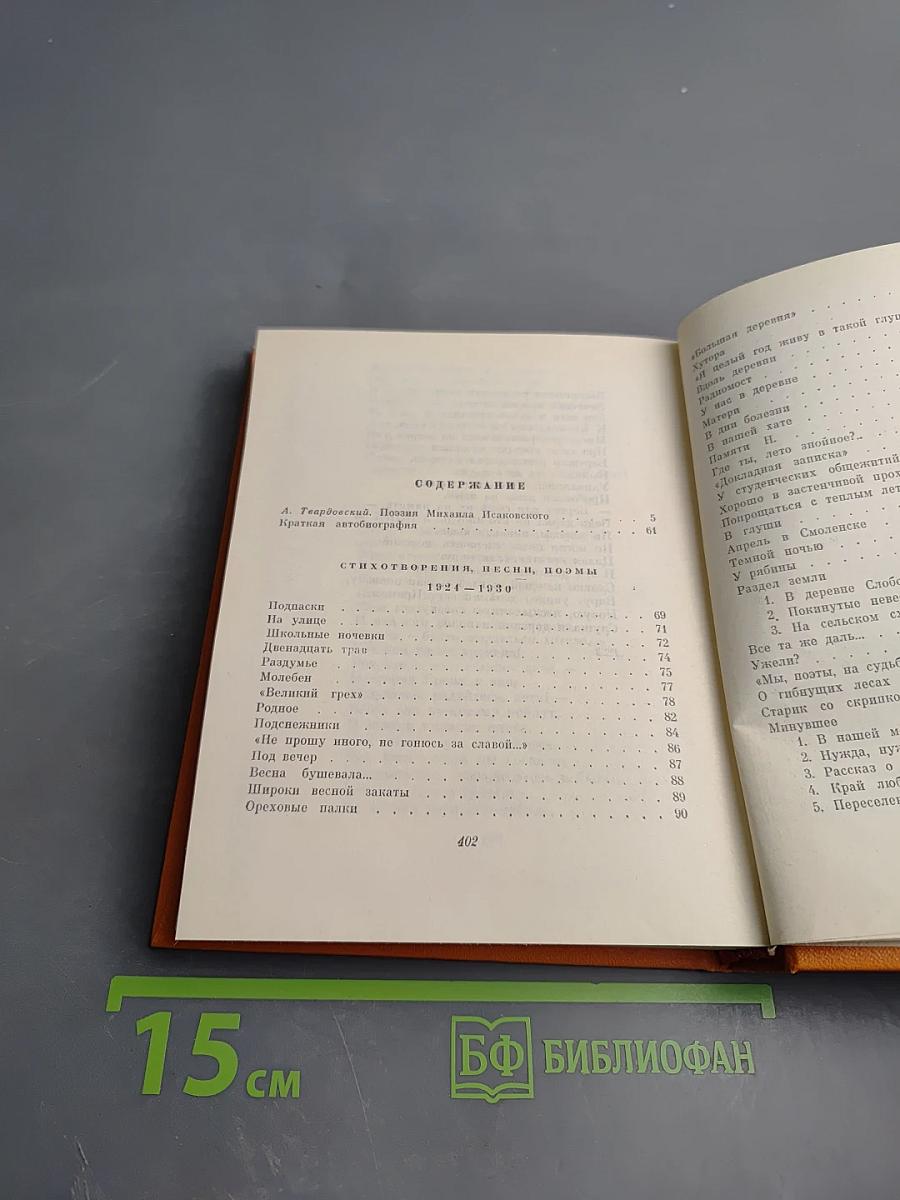 СОДЕРЖАНИЕ
А. Твардовский. Поэзия Михаила Исаковского . . . 5
Краткая автобиография . . . . . . . . . . . . 61
СТИХОТВОРЕНИЯ, ПЕСНИ, ПОЭМЫ
1924—1930
Подпаски . . . . . . . . . . . . . . . . 69
На улице . . . . . . . . . . . . . . . . 71
Школьные ночевки . . . . . . . . . . . . . 72
Двенадцать трав . . . . . . . . . . . . . . 74
Раздумье . . . . . . . . . . . . . . . . 75
Молебен . . . . . . . . . . . . . . . . 77
«Великий грех» . . . . . . . . . . . . . . 78
Родное . . . . . . . . . . . . . . . . . 82
Подснежники . . . . . . . . . . . . . . . 84
«Не прошу иного, не гонюсь за славой...» . . . . . 86
Под вечер . . . . . . . . . . . . . . . . 87
Весна бушевала... . . . . . . . . . . . . . 88
Широки весной закаты . . . . . . . . . . . . 89
Ореховые палки . . . . . . . . . . . . . . 90
402
«Большая деревня» . . .
Хутора . . .
«Я целый год живу в такой глуш
Вдоль деревни . . .
Радиомост . . .
У нас в деревне . . .
Матери . . .
В дни болезни . . .
В нашей хате . . .
Памяти Н. . . .
Где ты, лето знойное?.. . . .
«Докладная записка» . . .
У студенческих общежитий
Хорошо в застенчивой прох
Попрощаться с теплым лет
В глуши . . .
Апрель в Смоленске . . .
Темной ночью . . .
У рябины . . .
Раздел земли
1. В деревне Слобо
2. Покинутые неве
3. На сельском сх
Все та же даль... . . .
Ужели? . . .
«Мы, поэты, на судьб
О гибнущих лесах
Старик со скрипко
Минувшее
1. В нашей м
2. Нужда, нуж
3. Рассказ о
4. Край люб
5. Переселен
15 см
БФ БИБЛИОФАН